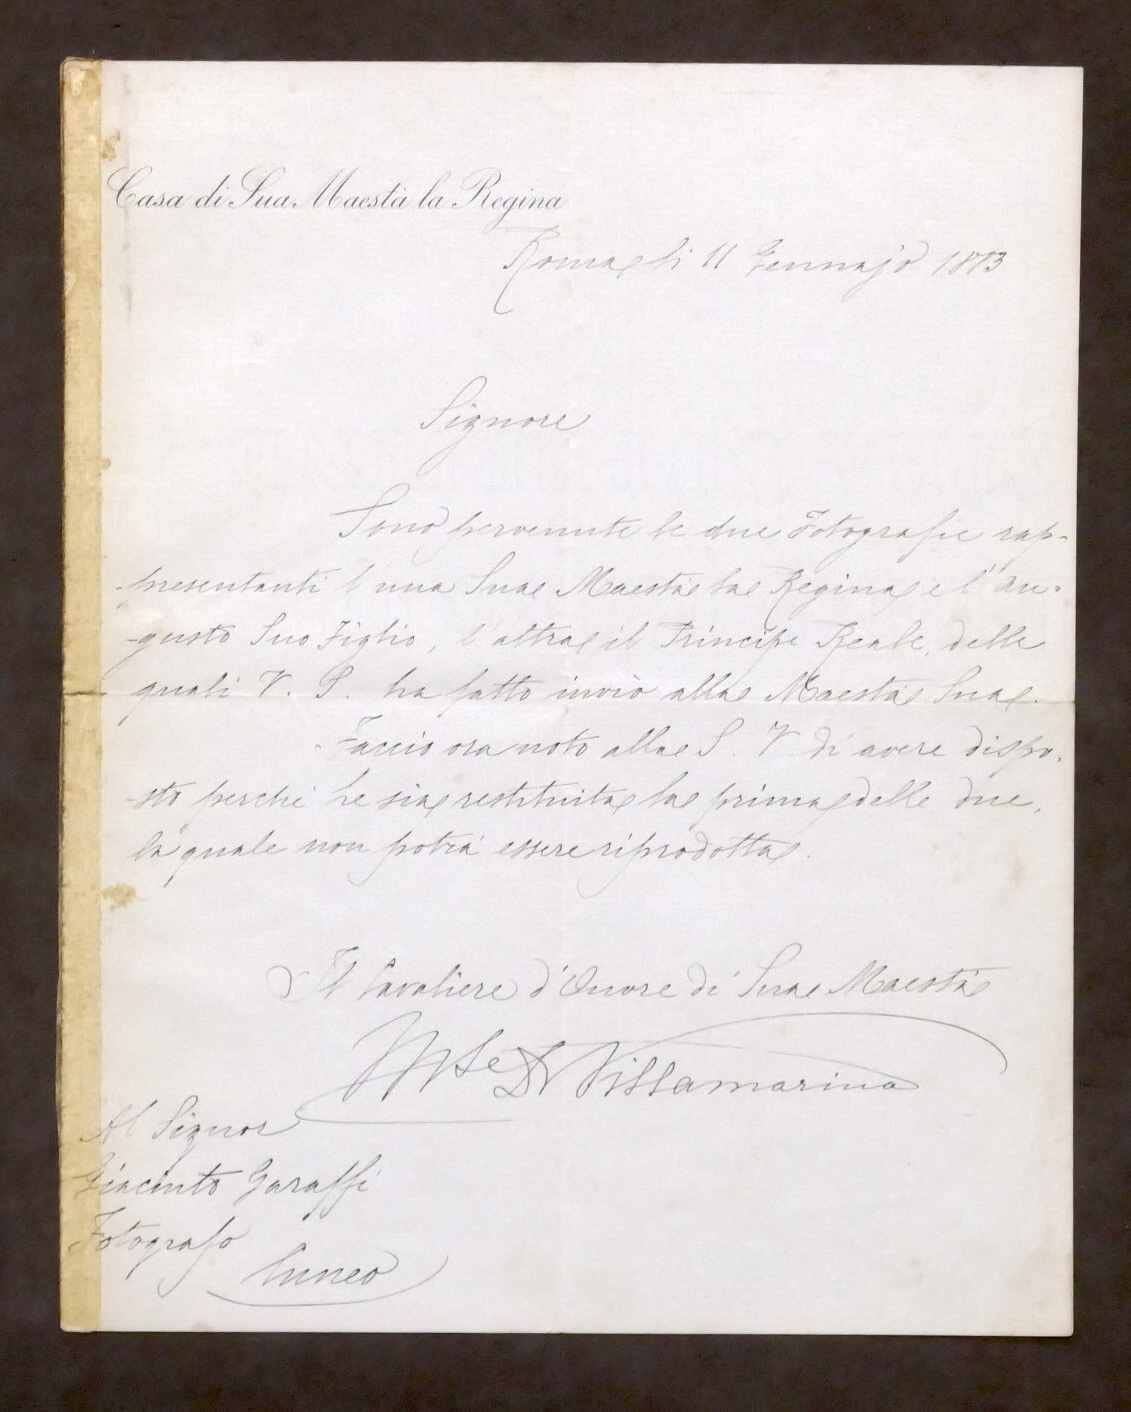 Casa di Sua Maestà la Regina
Roma li 11 Gennajo 1873
Signore
Sono pervenute le due Fotografie rap-
-presentanti l'una Sua Maestà la Regina e l'Au-
-gusto Suo Figlio, l'altra il Principe Reale, delle
quali V. S. ha fatto invio alla Maestà Sua.
Faccio ora noto alla S. V. di avere dispo-
-sto perchè le sia restituita la prima delle due,
la quale non potrà essere riprodotta.
Il Cavaliere d'Onore di Sua Maestà
Mse Di Villamarina
Al Signor
Giacinto Garaffi
Fotografo
Cuneo